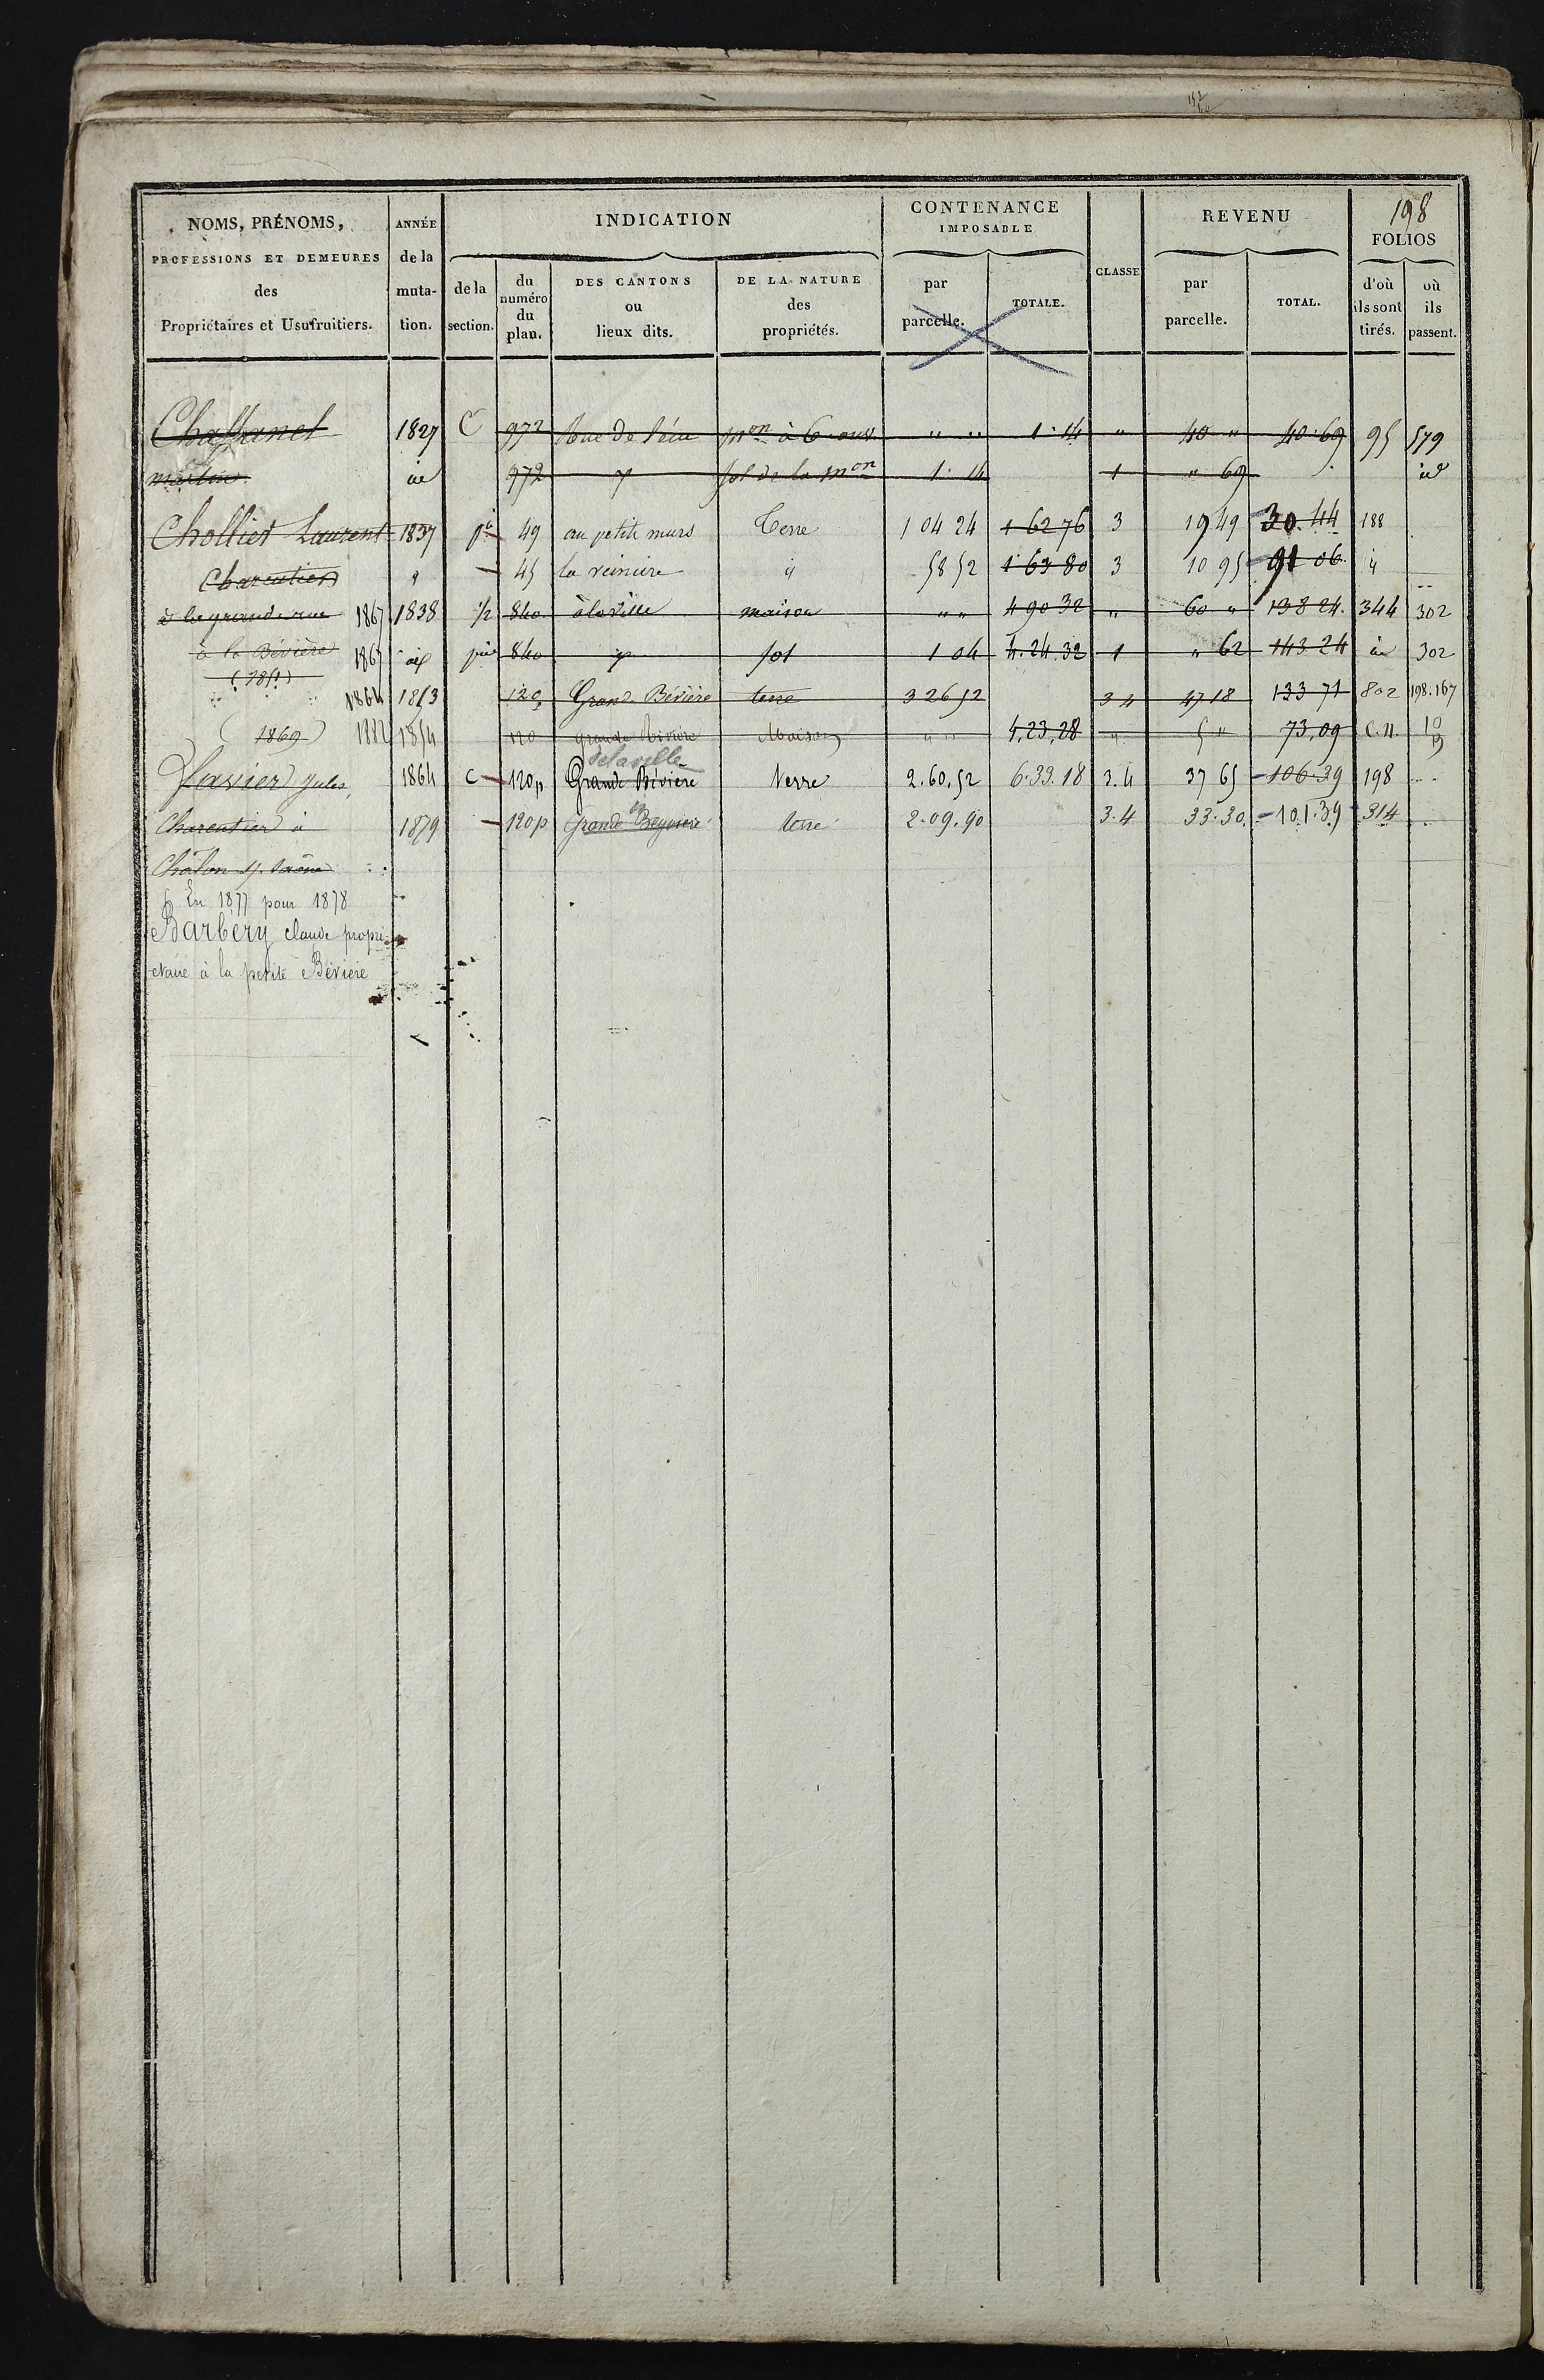 198
NOMS, PRÉNOMS, PROFESSIONS ET DEMEURES des Propriétaires et Usufruitiers.
ANNÉE de la muta-tion.
INDICATION
de la section.
du numéro du plan.
DES CANTONS ou lieux dits.
DE LA NATURE des propriétés.
CONTENANCE IMPOSABLE
par parcelle.
TOTALE.
CLASSE
REVENU
par parcelle.
TOTAL.
FOLIOS
d'où ils sont tirés.
où ils passent.
Chaffanel 1827 C 972 Rue de mon à 6 ouv " " 1.14 " 40 " 40.69 95 579
972 sol de la mon 1.14 1 " 69 id
Chollier Laurent 1837 49 au petit murs Terre 1 04 24 1 62 76 3 19 49 30.44 188
Charentier " 45 la reiniere id 58 52 1 63 80 3 10 95 91 06 id
à la grande rue 1867 1838 1/2 840 à la ville maison " " 4 90 32 " 60 " 138 24 344 302
à la Bévière 1867 840 sol 1 04 4.24.32 1 " 62 143.24 id 302
1864 1853 120 Grand. Bévière terre 3 26 52 3 4 47 18 133 71 802 198.167
(1869) 1882 1854 120 grande Bévière Maison " " 4,23,28 " 5 " 73,09 C.N.
delaville
Favier Jules, 1864 C 120p Grande Bévière Terre 2.60.52 6.33.18 3.4 37 65 106.39 198
Charentier à 1879 120p Grande Beyviere terre 2.09.90 3.4 33.30 101.39 314
Châlon s/. Saône
En 1877 pour 1878
Barbery claude propri-
etaire à la petite Bévière